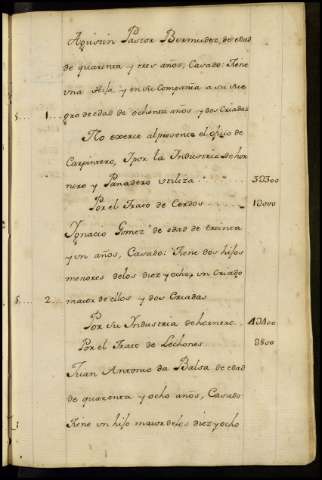 Agustin Pastor Bermudez, de edad
de quarenta y tres años, Casado: Tiene
una Hija y en su Compañia a su sue
gro de edad de ochenta años y dos Criadas
S 1
No exerce al presente el ofizio de
Carpintero, I por la Industria de hor
nero y Panadero utiliza
Por el Trato de Cerdos
Ignacio Gomez de edad de treinta
y un años, Casado: Tiene dos hijos
menores de los diez y ocho, un Criado
S 2 maior de ellos y dos Criadas
Por su Industria de hornero
Por el Trato de Lechones
Juan Antonio da Balsa de edad
de quarenta y ocho años, Casado
Tiene un hijo maior de los diez y ocho